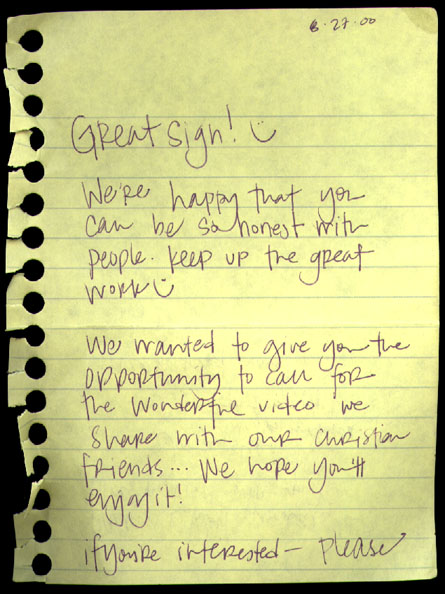 6·27·00
Great sign! :)
We're happy that you
can be so honest with
people. Keep up the great
work :)
We wanted to give you the
opportunity to call for
the wonderful video we
share with our Christian
friends... We hope you'll
enjoy it!
if you're interested - please